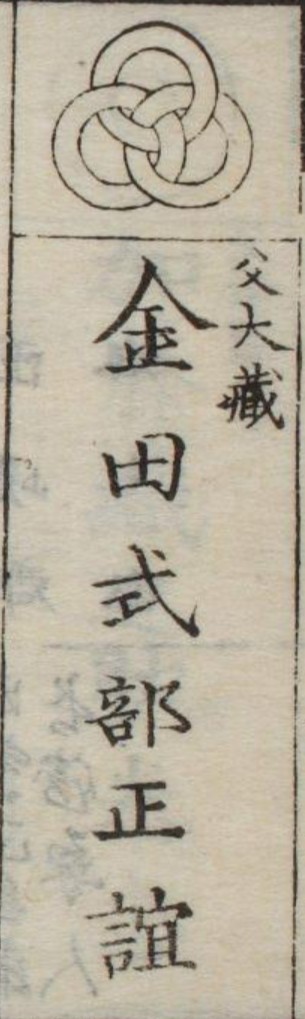 父大藏
金田式部正誼